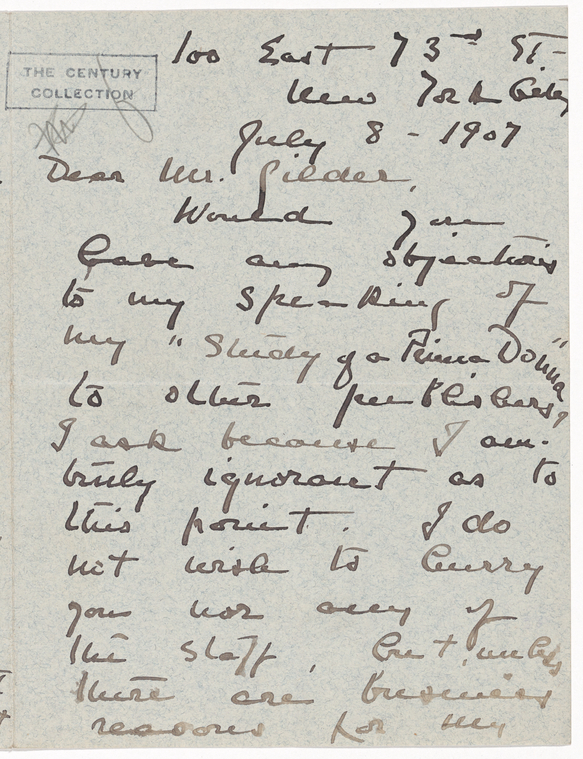 THE CENTURY
COLLECTION
100 East 73rd St.
New York City
July 8 - 1907
Dear Mr. Gilder,
Would you
have any objections
to my speaking of
my "Study of a Prima Donna"
to other publishers?
I ask because I am
truly ignorant as to
this point. I do
not wish to hurry
you nor any of
the staff, but, unless
there are business
reasons for my